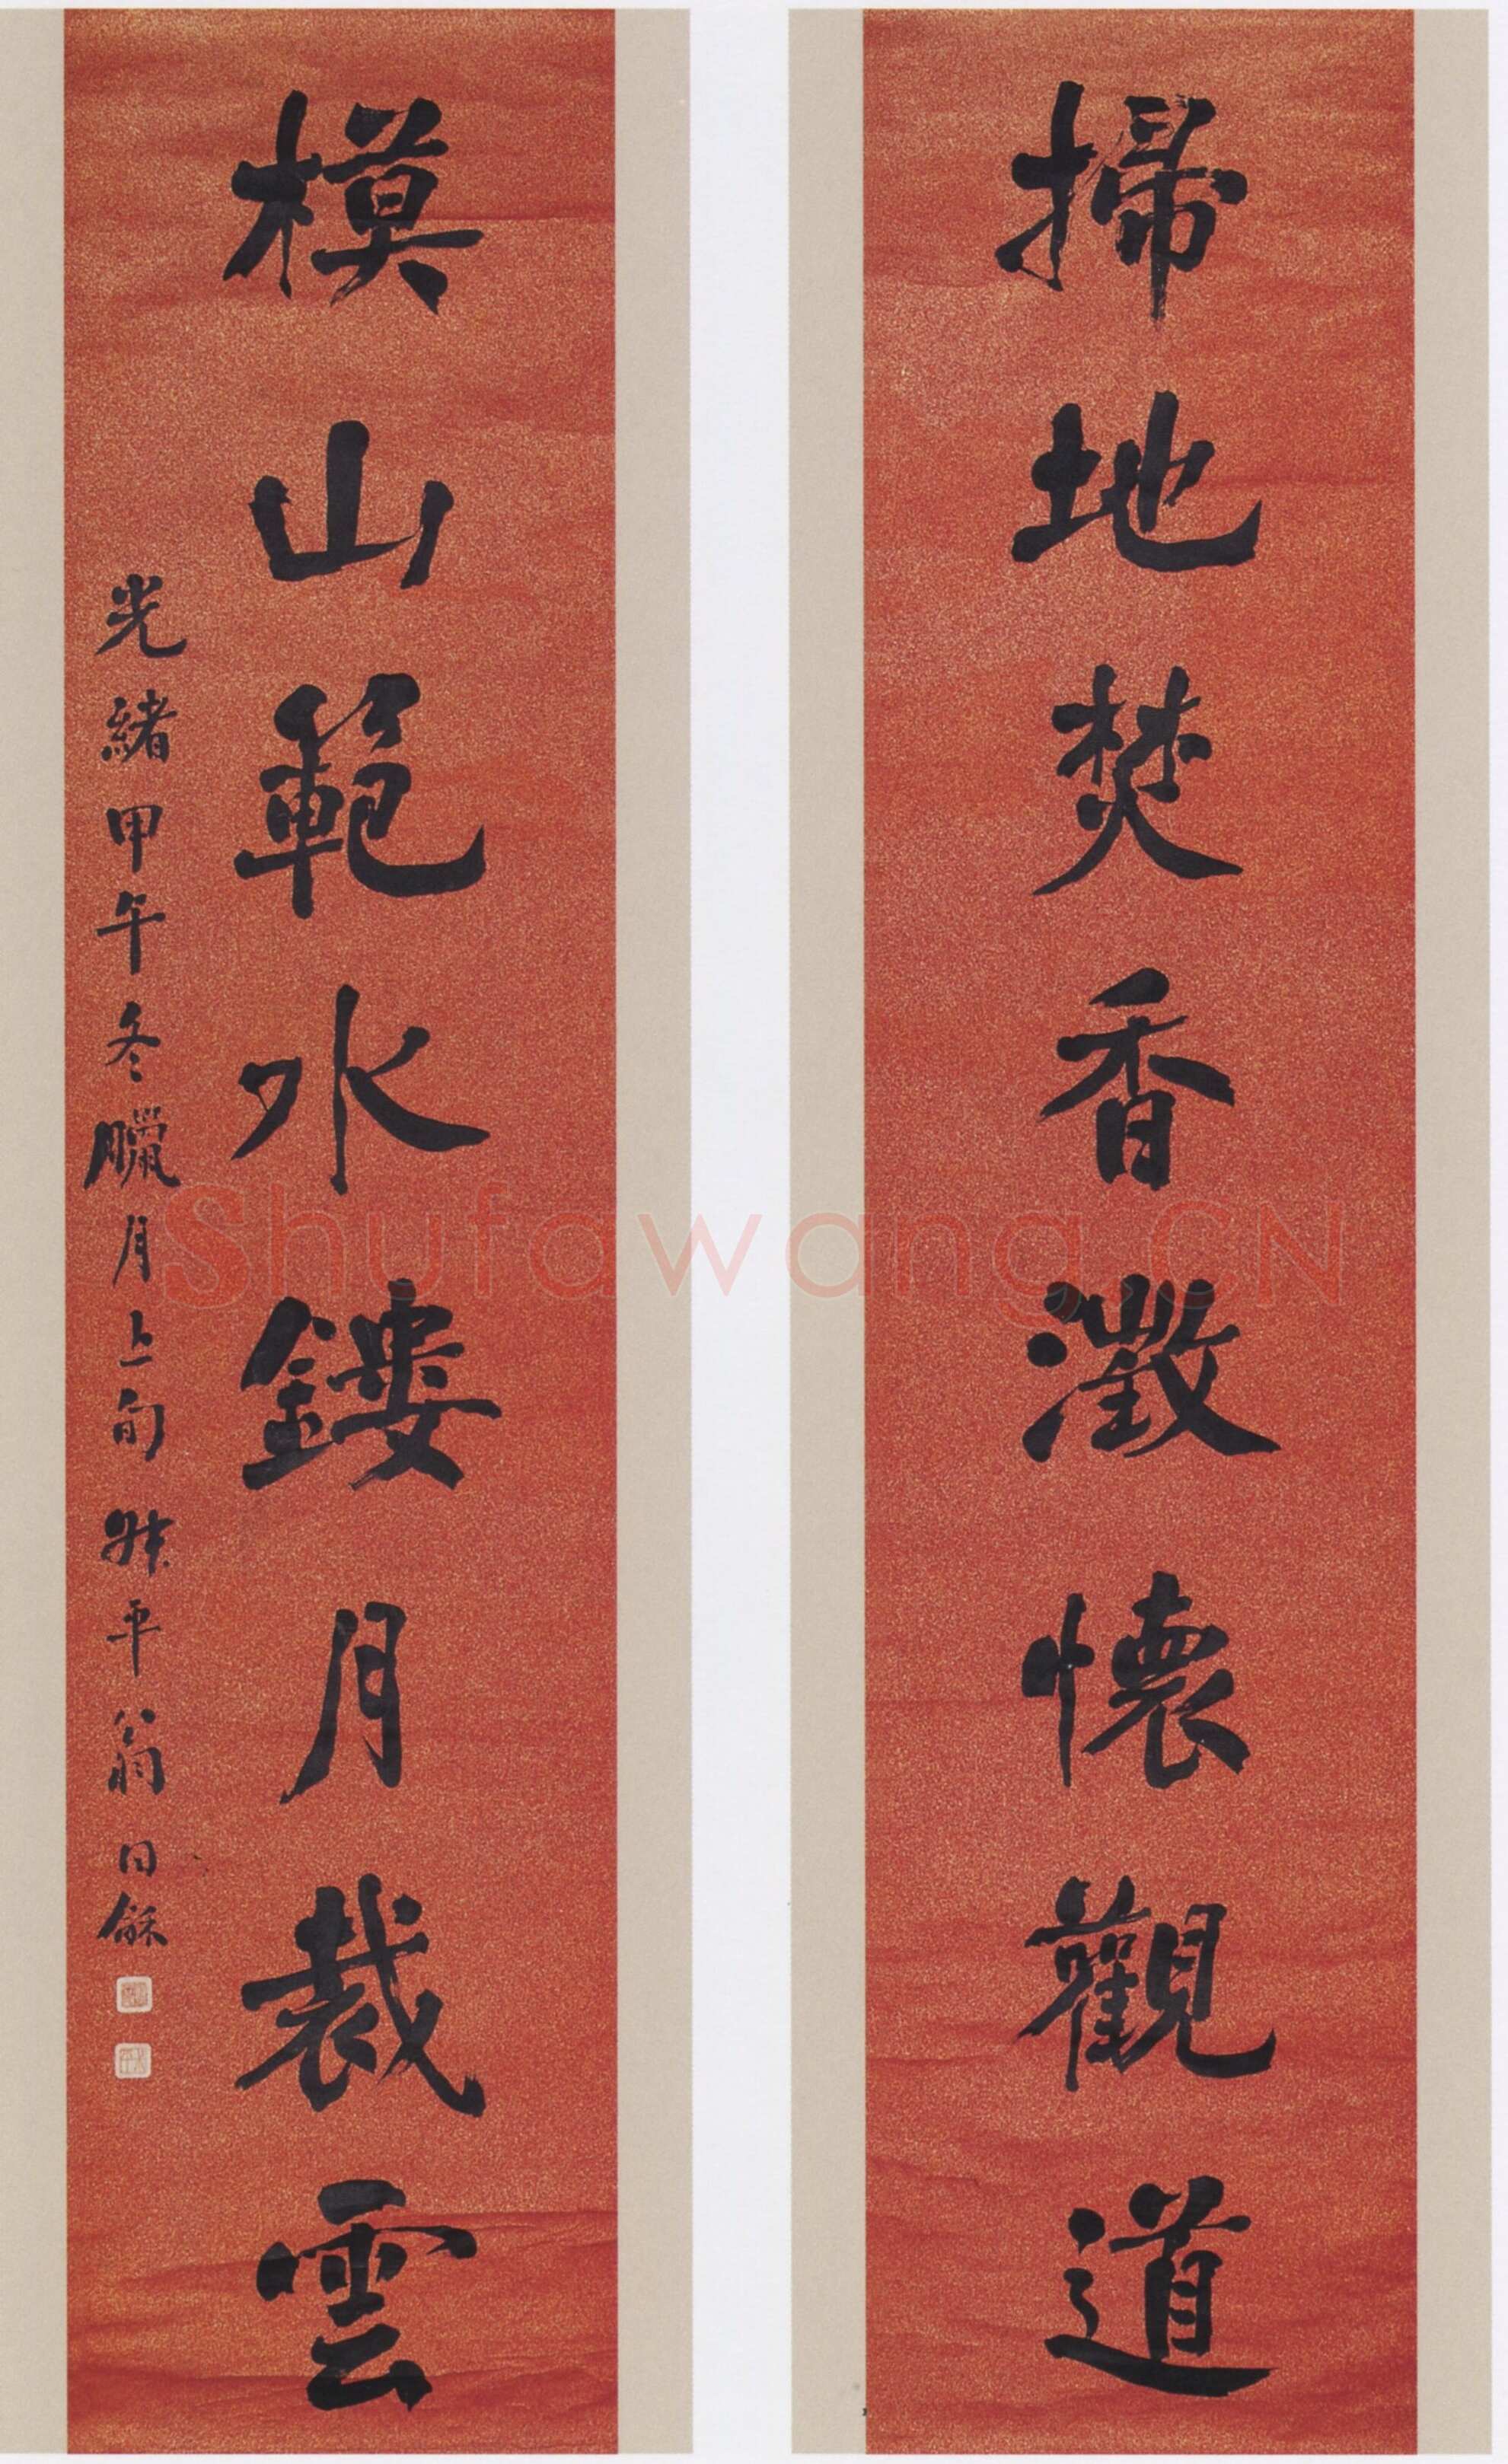 掃地焚香澂懷觀道
模山範水鏤月裁雲
光緒甲午冬臘月上旬叔平翁同龢
Shufawang.CN